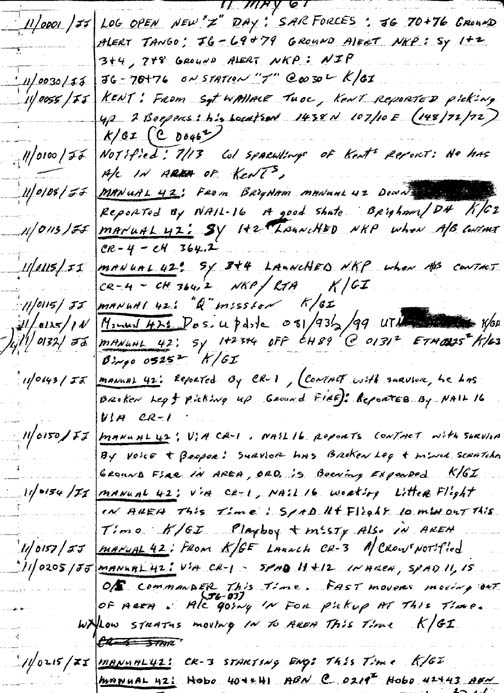 11 MAY 67
11/0001/JJ LOG OPEN NEW "Z" DAY: SAR FORCES: JG 70+76 GROUND
ALERT TANGO: JG-69+79 GROUND ALERT NKP: Sy 1+2
3+4, 7+8 GROUND ALERT NKP: NIP
11/0030/JJ JG-70+76 ON STATION "T" @ 0030Z K/GI
11/0055/JJ KENT: FROM Sgt WALLACE TUOC, KENT REPORTED picking
up 2 Beepers: his Location 1438N 107/10E (148/72/72)
K/GI (@ 0046Z)
11/0100/JJ Notified: 7/13 Col SPARWlings OF KENT'S REPORT: He HAS
A/C IN AREA OF KENT'S,
11/0108/JJ MANUAL 42: FROM BRIGHAM MANUAL 42 DOWN
REPORTED By NAIL-16 A good shute. Brigham/DA K/GI
11/0113/JJ MANUAL 42: Sy 1+2 LAUNCHED NKP when A/B CONTACT
CR-4 - CH 364.2
11/0115/JJ MANUAL 42: Sy 3+4 LAUNCHED NKP when A/B CONTACT
CR-4 - CH 364.2 NKP/RTA K/GI
11/0115/JJ MANUAL 42: "Q" mission K/GI
11/0125/IN Manual 42: Pos. Update 081/93½/99 UTM K/GF
11/0132/JJ MANUAL 42: Sy 1+2 3+4 OFF CH89 @ 0131Z ETA 0225Z K/GI
Bingo 0525Z K/GI
11/0143/JJ MANUAL 42: REPORTED By CR-1, (CONTACT with survivor, he has
BROKEN Leg & Picking up GROUND FIRE): REPORTED By NAIL 16
VIA CR-1.
11/0150/JJ MANUAL 42: VIA CR-1. NAIL 16 REPORTS CONTACT with SURVIVOR
BY VOICE + Beeper: SURVIVOR HAS BROKEN Leg & minor SCRATCHES
GROUND FIRE IN AREA, ORD. is Beening Expended K/GI
11/0154/JJ MANUAL 42: VIA CR-1, NAIL 16 working Litter Flight
IN AREA This Time: SPAD 11 Flight 10 min OUT THIS
Time K/GI Playboy & Misty Also in AREA
11/0157/JJ MANUAL 42: FROM K/GF LAUNCH CR-3 A/CROW NOTIFIED
11/0205/JJ MANUAL 42: VIA CR-1 - SPAD 11+12 IN AREA, SPAD 11, IS
O/S COMMANDER This Time. FAST movers moving OUT
OF AREA. A/C (JG-07) going IN FOR Pickup AT This Time.
WX/Low STRATUS moving IN TO AREA This Time K/GI
CR-3 START
11/0215/JJ MANUAL 42: CR-3 STARTING ENG: This Time K/GI
MANUAL 42: Hobo 40+41 ABN @ 0219Z Hobo 42+43 ABN